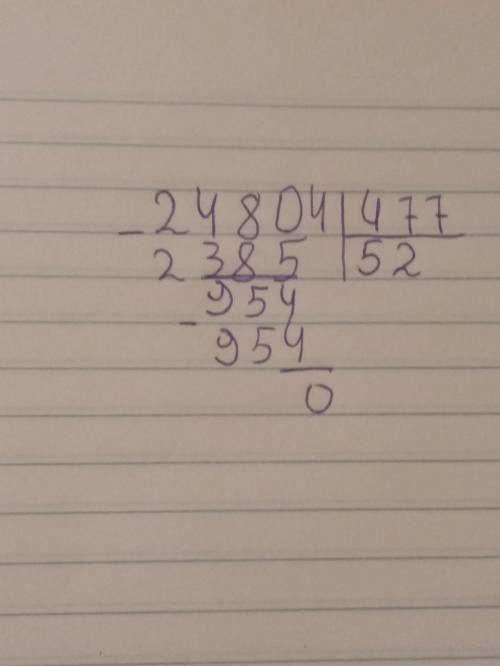 - 24804 | 477
2385 | 52
- 954
954
0